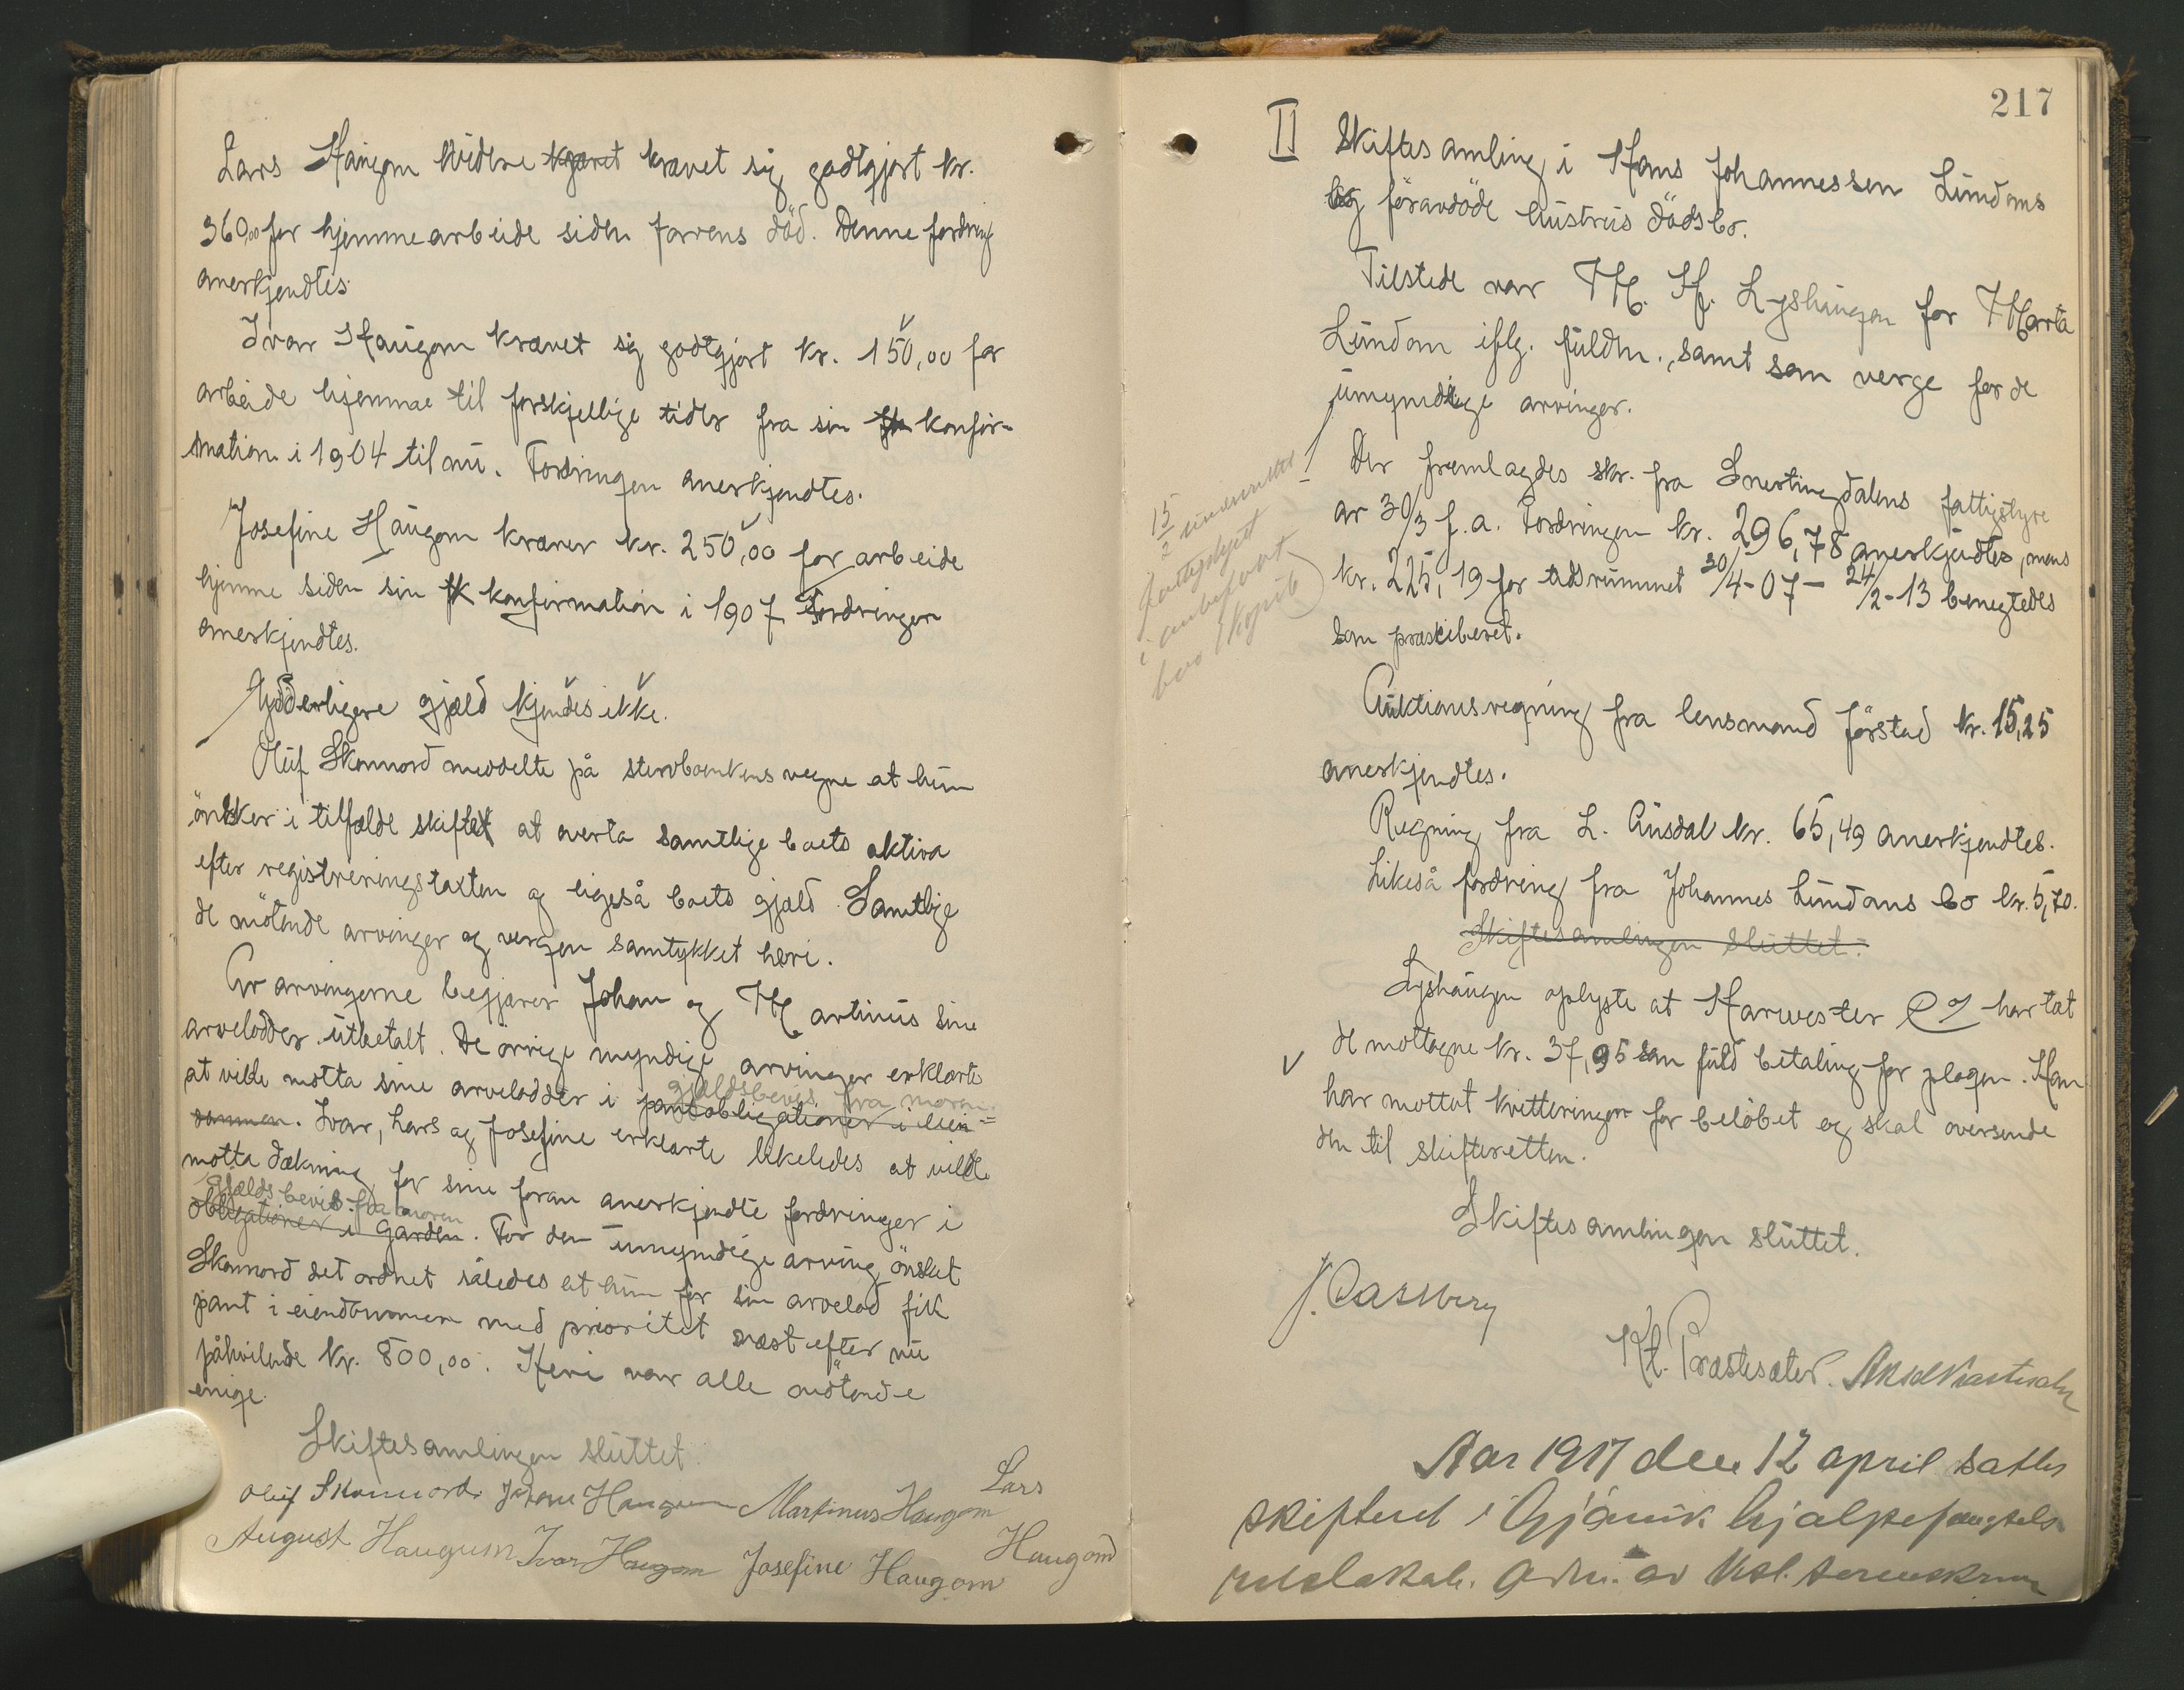 Lars Haugom videre krævet sig godtgjort kr.
360,00 for hjemmearbeide siden farens död. Denne fordring
anerkjendtes.
Ivar Haugom krævet sig godtgjort kr. 150,00 for
arbeide hjemme til forskjellige tider fra sin konfir-
mation i 1904 til nu. Fordringen anerkjendtes.
Josefine Haugom kræver kr. 250,00 for arbeide
hjemme siden sin konfirmation i 1907 Fordringen
anerkjendtes.
Ydderligere gjæld kjendes ikke.
Oluf Skonnord meddelte på stervboenkens vegne at hun
önsker i tilfælde skiftet at overta samtlige boets aktiva
efter registreringstaxten og ligeså boets gjæld. Samtlige
de mötende arvinger og vergen samtykket heri.
Av arvingerne begjærer Johan og Martinus sine
arvelodder utbetalt. De övrige myndige arvinger erklærte
at ville motta sine arvelodder i pantobligationer i eien-
gjældsbevis fra moren
dommen. Ivar, Lars og Josefine erklærte likeledes at ville
motta dækning for sine foran anerkjendte fordringer i
gjældsbevis fra moren
obligationer i Garden. For den umyndige arving önsket
Skonnord det ordnet således at hun for sin arvelod fik
pant i eiendommen med prioritet næst efter nu
påhvilende kr. 800,00. Heri var alle mötende
enige.
Skiftesamlingen sluttet.
Oluf Skonnord. Johan Haugom Martinus Haugom Lars
August Haugum Ivar Haugom Josefine Haugom Haugom
217
II Skiftesamling i Hans Johannessen Lundons
og föravdöde hustrus dödsbo.
Tilstede var M. H. Lyshaugen for Marta
Lundon iflg. fuldm., samt som verge for de
umyndige arvinger.
Der fremlagdes skr. fra Snertingdalens fattigstyre
av 30/3 f.a. Fordringen kr. 296,78 anerkjendtes, mens
kr. 225,19 for tidsrummet 30/4-07 - 24/2-13 benegtedes
som præskiberet.
15/2 underrettet
fattigstyret
i anbefalt
brev (kopib)
Auktionsregning fra lensmand Förstad kr. 15,25
anerkjendtes.
Regning fra L. Ausdal kr. 65,49 anerkjendtes.
Likeså fordring fra Johannes Lundons bo kr. 5,70.
Skiftesamlingen sluttet.
Lyshaugen oplyste at Harwester Co har tat
de mottagne kr. 37,95 som fuld betaling for plogen. Han
har mottat kvitteringen for belöbet og skal oversende
den til skifteretten.
Skiftesamlingen sluttet.
J. Castberg
Kt. Præstesæter. Aksel Præstesæter
Aar 1917 den 12 april sattes
skifteret i Gjövik hjælpefængsels
retslokale. Adm. av kst. sorenskriver